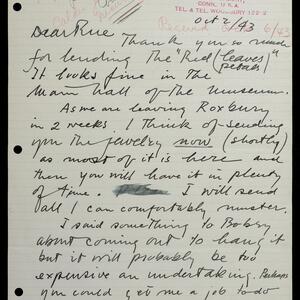 CONN. U.S.A.
TEL. & TEL. WOODBURY 122-2
Received Oct 6/43
Oct 2/43
Dear Prue
Thank you so much
for lending the "Red (leaves)"
(petals)
It looks fine in the
main hall of the museum.
As we are leaving Roxbury
in 2 weeks I think of sending
you the jewelry now (shortly)
as most of it is here and
then you will have it in plenty
of time. I will send
all I can comfortably muster.
I said something to Bobsy
about coming out to hang
but it will probably be too
expensive an undertaking. Perhaps
you could get me a job to do